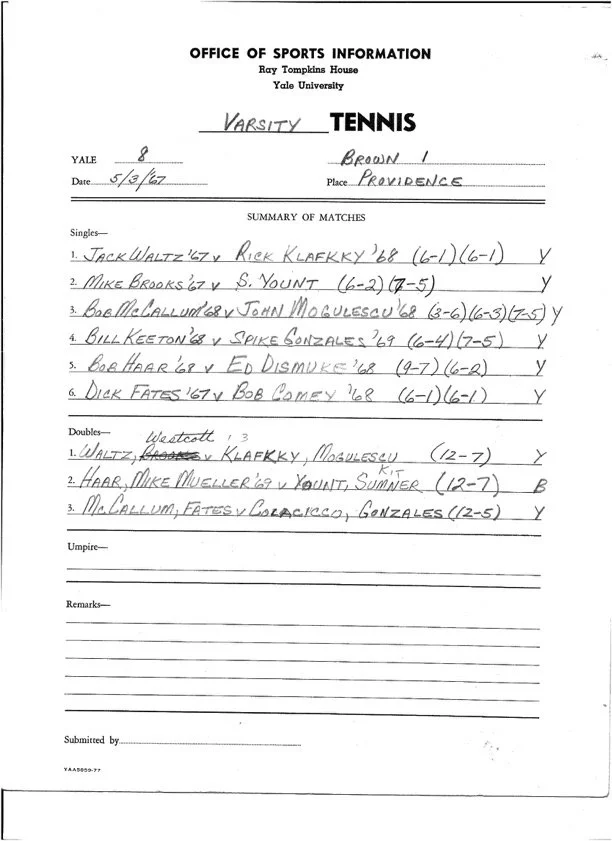 OFFICE OF SPORTS INFORMATION
Ray Tompkins House
Yale University
VARSITY TENNIS
YALE 8 BROWN 1
Date 5/3/'67 Place PROVIDENCE
SUMMARY OF MATCHES
Singles—
1. JACK WALTZ '67 v RICK KLAFKKY '68 (6-1)(6-1) Y
2. MIKE BROOKS '67 v S. YOUNT (6-2)(7-5) Y
3. BOB McCALLUM '68 v JOHN MOGULESCU '68 (3-6)(6-3)(7-5) Y
4. BILL KEETON '68 v SPIKE GONZALES '69 (6-4)(7-5) Y
5. BOB HAAR '68 v ED DISMUKE '68 (9-7)(6-2) Y
6. DICK FATES '67 v BOB COMEY '68 (6-1)(6-1) Y
Doubles—
Westcott
1. WALTZ, BROOKS v KLAFKKY, MOGULESCU (12-7) Y
KIT
2. HAAR, MIKE MUELLER '69 v YOUNT, SUMNER (12-7) B
3. McCALLUM, FATES v COLACICCO, GONZALES (12-5) Y
Umpire—
Remarks—
Submitted by
YAA5859-77